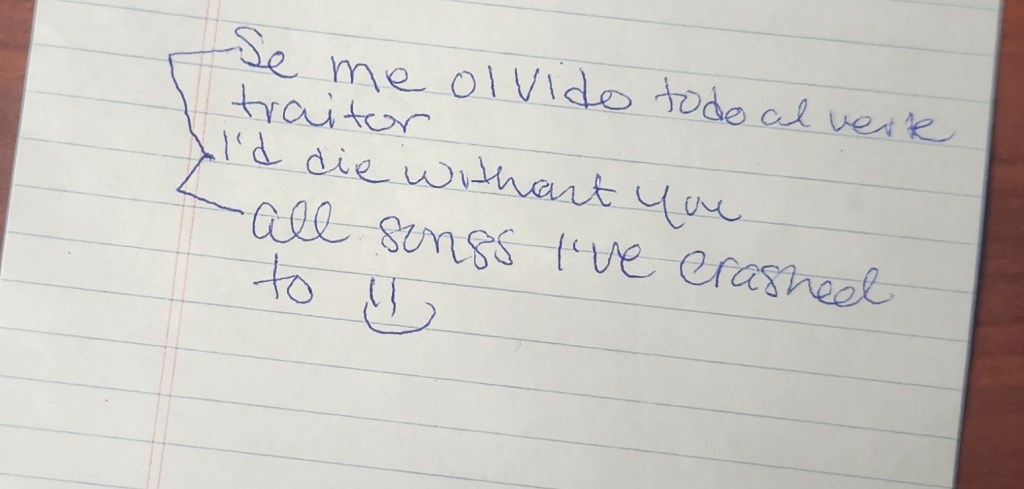 Se me olvido todo al verte
traitor
I'd die without you
all songs I've crashed
to